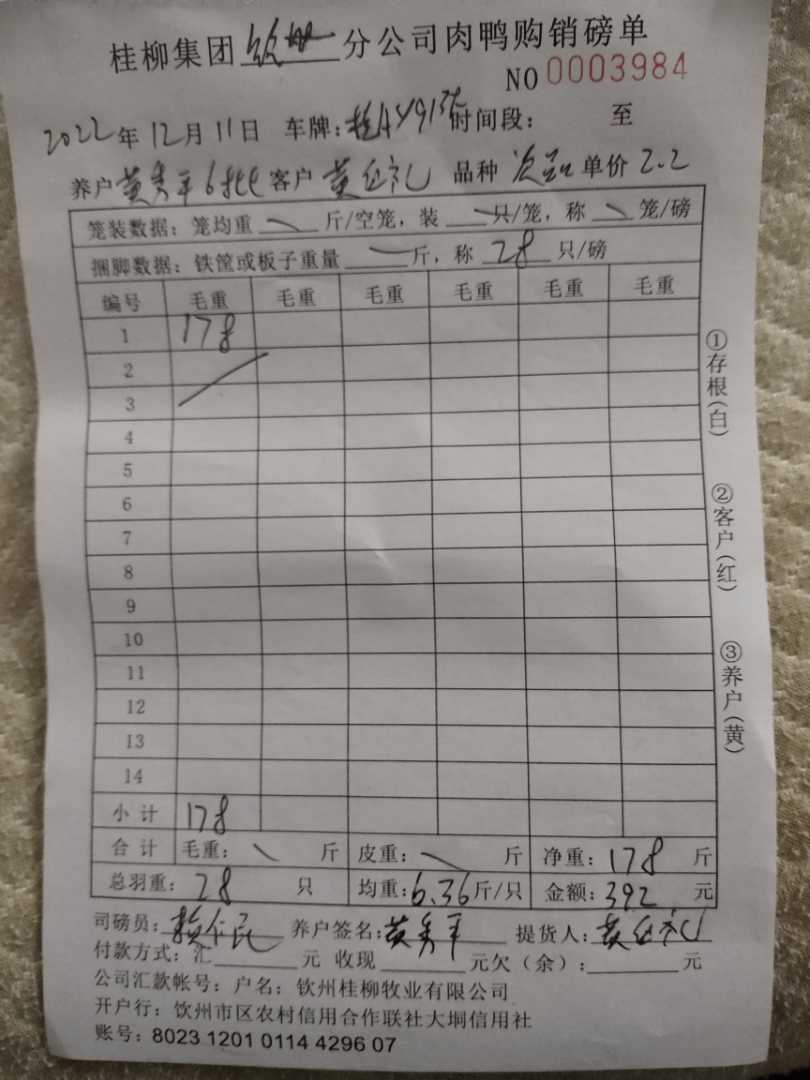 桂柳集团钦州分公司肉鸭购销磅单
NO 0003984
2022年12月11日 车牌: 时间段: 至
养户黄秀平6批 客户 黄 礼 品种 次品 单价 2.2
笼装数据: 笼均重 \ 斤/空笼, 装 \ 只/笼, 称 \ 笼/磅
捆脚数据: 铁筐或板子重量 \ 斤, 称 28 只/磅
编号 毛重 毛重 毛重 毛重 毛重 毛重
1 178
2
3
4
5
6
7
8
9
10
11
12
13
14
小计 178
合计 毛重: \ 斤 皮重: \ 斤 净重: 178 斤
总羽重: 28 只 均重: 6.36斤/只 金额: 392 元
司磅员: 养户签名: 黄秀平 提货人: 黄 礼
付款方式: 汇 元 收现 元欠(余): 元
公司汇款帐号: 户名: 钦州桂柳牧业有限公司
开户行: 钦州市区农村信用合作联社大垌信用社
账号: 8023 1201 0114 4296 07
①存根(白)
②客户(红)
③养户(黄)